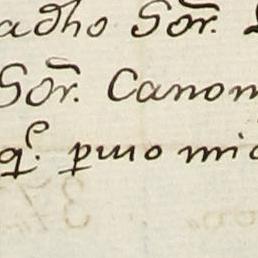 adho Sõr.
Sõr. Canon
q.e puio mi